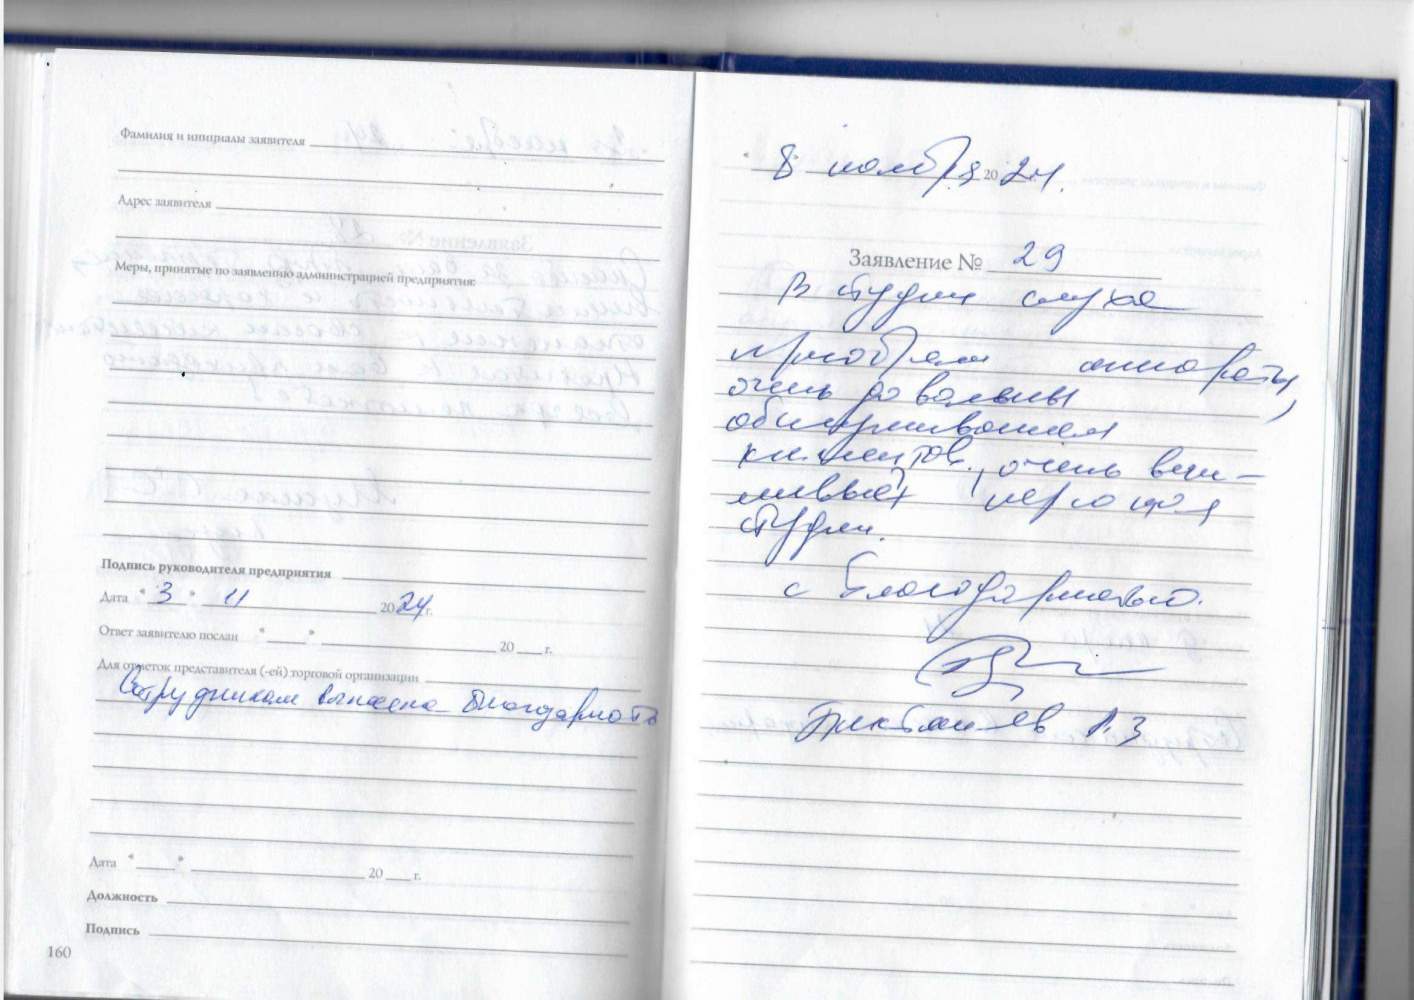 Фамилия и инициалы заявителя
Адрес заявителя
Меры, принятые по заявлению администрацией предприятия:
Подпись руководителя предприятия
Дата "3" 11 2024 г.
Ответ заявителю послан " " 20 г.
Для отметок представителя (-ей) торговой организации
Сотрудникам вынесена благодарность
Дата " " 20 г.
Должность
Подпись
160
8 ноября 2024.
Заявление № 29
В студии слуха
приобрели аппараты,
очень довольны
обслуживанием
клиентов, очень вни-
мательный персонал
студии.
с благодарностью.